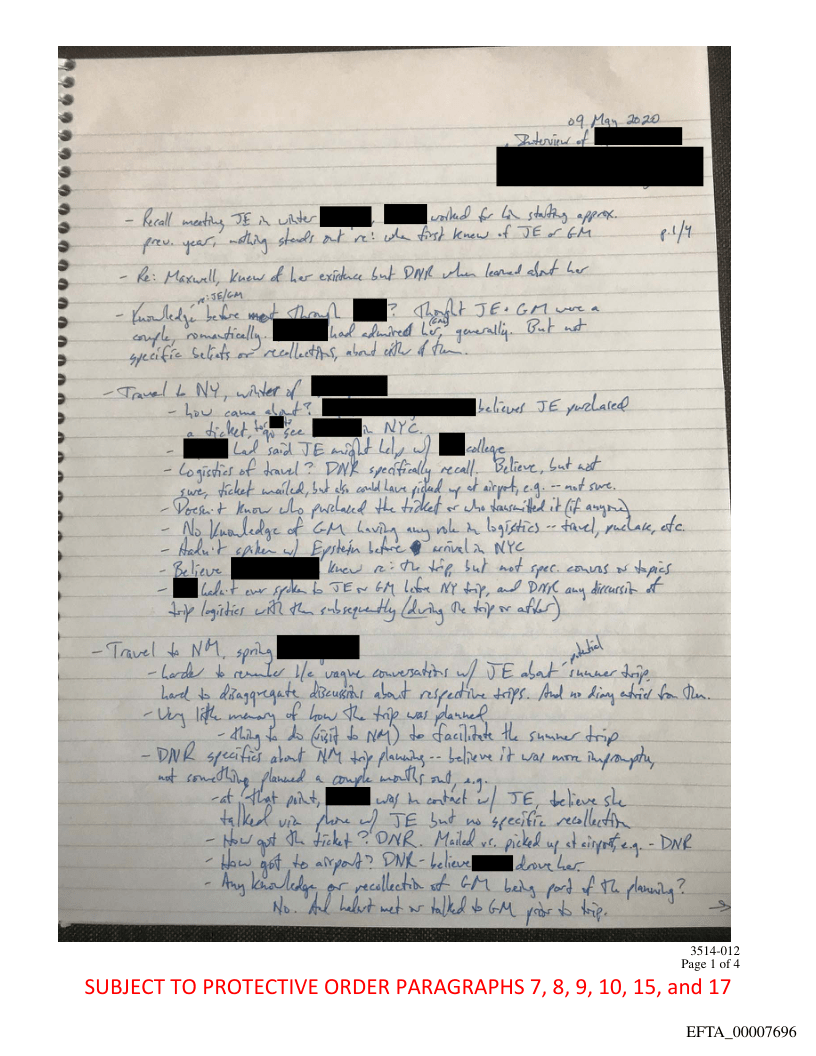 09 May 2020
Interview of
- Recall meeting JE in winter , worked for him starting approx.
prev. year, nothing stands out re: when first knew of JE or GM
p.1/4
- Re: Maxwell, knew of her existence but DNR when learned about her
re: JE/GM
- Knowledge before met through ? Thought JE + GM were a
couple, romantically. had admired her, (GM) generally. But not
specific beliefs or recollections, about either of them.
- Travel to NY, winter of
- how came about? believes JE purchased
a ticket, for to go see in NYC.
- had said JE might help w/ college
- Logistics of travel? DNR specifically recall. Believe, but not
sure, ticket mailed, but also could have picked up at airport, e.g. -- not sure.
- Doesn't know who purchased the ticket or who transmitted it (if anyone)
- No knowledge of GM having any role in logistics -- travel, purchase, etc.
- Hadn't spoken w/ Epstein before arrival in NYC
- Believe knew re: the trip, but not spec. convos or topics
- hadn't ever spoken to JE or GM before NY trip, and DNR any discussion of
trip logistics with them subsequently (during the trip or after)
- Travel to NM, spring
- harder to remember b/c vague conversations w/ JE about potential summer trip.
hard to disaggregate discussions about respective trips. And no diary entries from then.
- Very little memory of how the trip was planned
- thing to do (visit to NM) to facilitate the summer trip
- DNR specifics about NM trip planning -- believe it was more impromptu,
not something planned a couple months out, e.g.
- at that point, was in contact w/ JE, believe she
talked via phone w/ JE but no specific recollection
- How got the ticket? DNR. Mailed vs. picked up at airport, e.g. - DNR
- How got to airport? DNR - believe drove her.
- Any knowledge or recollection of GM being part of the planning?
No. And hadn't met or talked to GM prior to trip.
→
3514-012
Page 1 of 4
SUBJECT TO PROTECTIVE ORDER PARAGRAPHS 7, 8, 9, 10, 15, and 17
EFTA_00007696